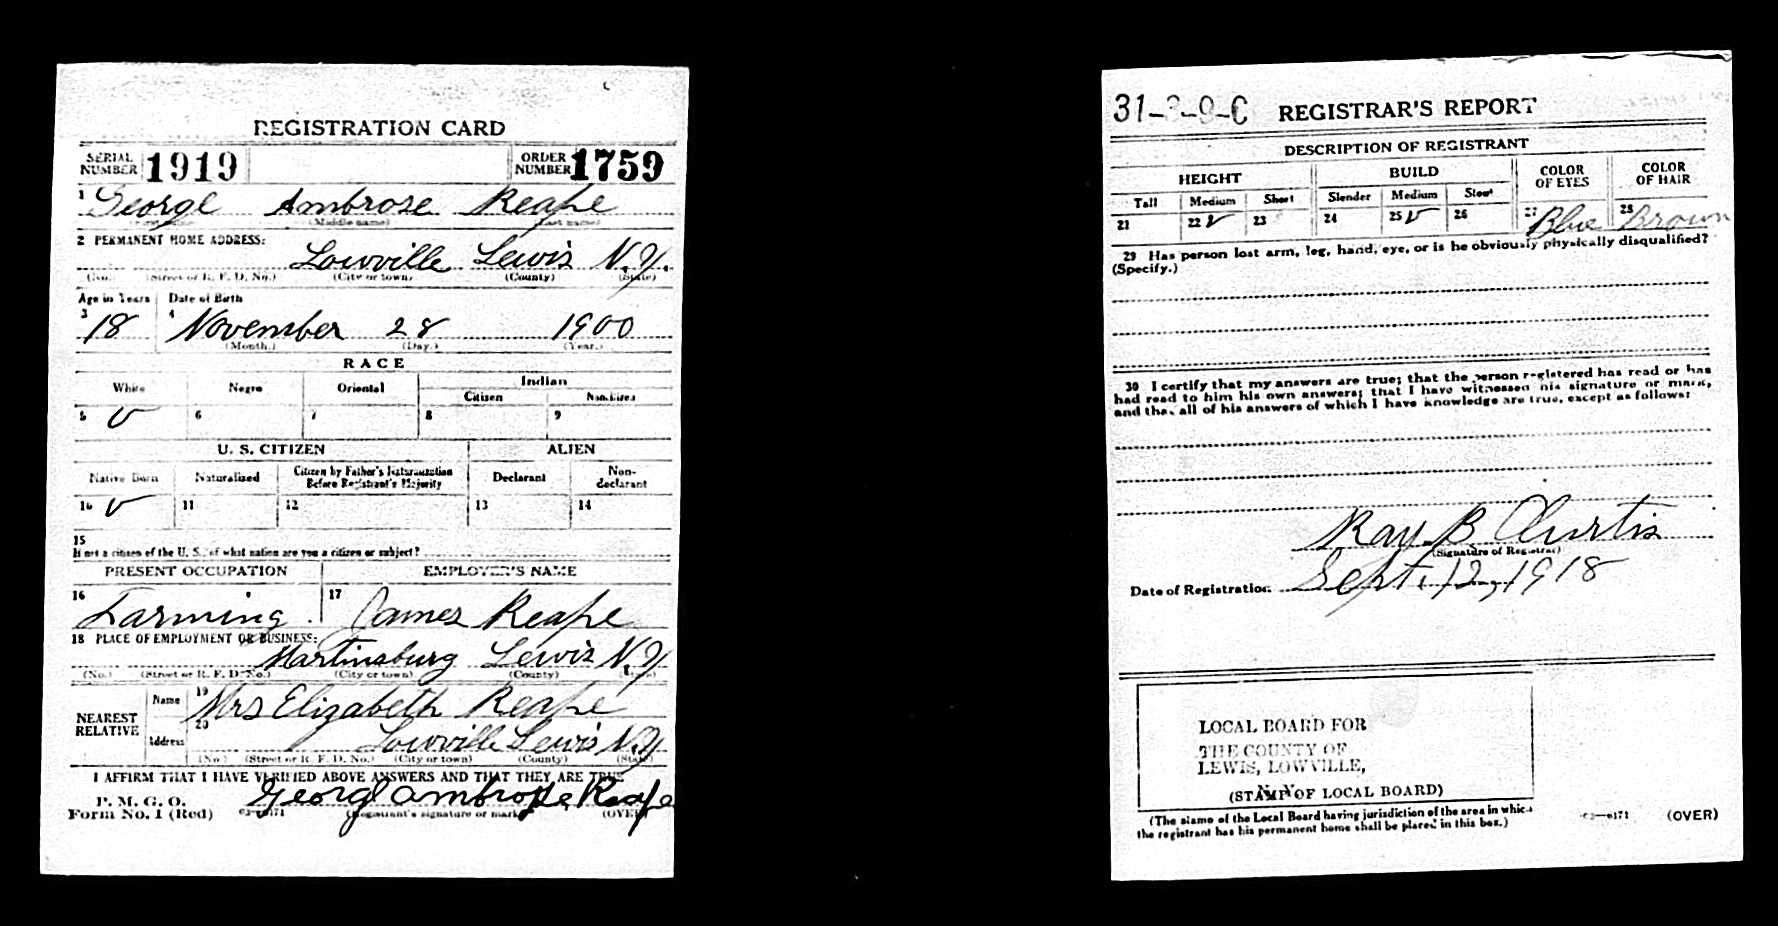 REGISTRATION CARD
SERIAL NUMBER 1919 ORDER NUMBER 1759
1 George Ambrose Reape
(Middle name) (Last name)
2 PERMANENT HOME ADDRESS:
Lowville Lewis N.Y.
(No.) (Street or R. F. D. No.) (City or town) (County) (State)
Age in Years Date of Birth
3 18 4 November 28 1900
(Month.) (Day.) (Year.)
RACE
White Negro Oriental Indian
Citizen Noncitizen
5 V 6 7 8 9
U. S. CITIZEN ALIEN
Native Born Naturalized Citizen by Father's Naturalization Before Registrant's Majority Declarant Non-declarant
10 V 11 12 13 14
15
If not a citizen of the U. S., of what nation are you a citizen or subject?
PRESENT OCCUPATION EMPLOYER'S NAME
16 Farming 17 James Reape
18 PLACE OF EMPLOYMENT OR BUSINESS:
Martinsburg Lewis N.Y.
(No.) (Street or R. F. D. No.) (City or town) (County) (State)
NEAREST RELATIVE Name 19 Mrs Elizabeth Reape
Address 20 Lowville Lewis N.Y.
(No.) (Street or R. F. D. No.) (City or town) (County) (State)
I AFFIRM THAT I HAVE VERIFIED ABOVE ANSWERS AND THAT THEY ARE TRUE
P. M. G. O.
Form No. 1 (Red) George Ambrose Reape
(Registrant's signature or mark) (OVER)
31-3-9-C REGISTRAR'S REPORT
DESCRIPTION OF REGISTRANT
HEIGHT BUILD COLOR OF EYES COLOR OF HAIR
Tall Medium Short Slender Medium Stout
21 22 V 23 24 25 V 26 27 Blue 28 Brown
29 Has person lost arm, leg, hand, eye, or is he obviously physically disqualified?
(Specify.)
30 I certify that my answers are true; that the person registered has read or has
had read to him his own answers; that I have witnessed his signature or mark,
and that all of his answers of which I have knowledge are true, except as follows:
Ray B. Curtis
(Signature of Registrar)
Date of Registration Sept. 12, 1918
LOCAL BOARD FOR
THE COUNTY OF
LEWIS, LOWVILLE,
N. Y.
(STAMP OF LOCAL BOARD)
(The stamp of the Local Board having jurisdiction of the area in which
the registrant has his permanent home shall be placed in this box.)
03—6171 (OVER)